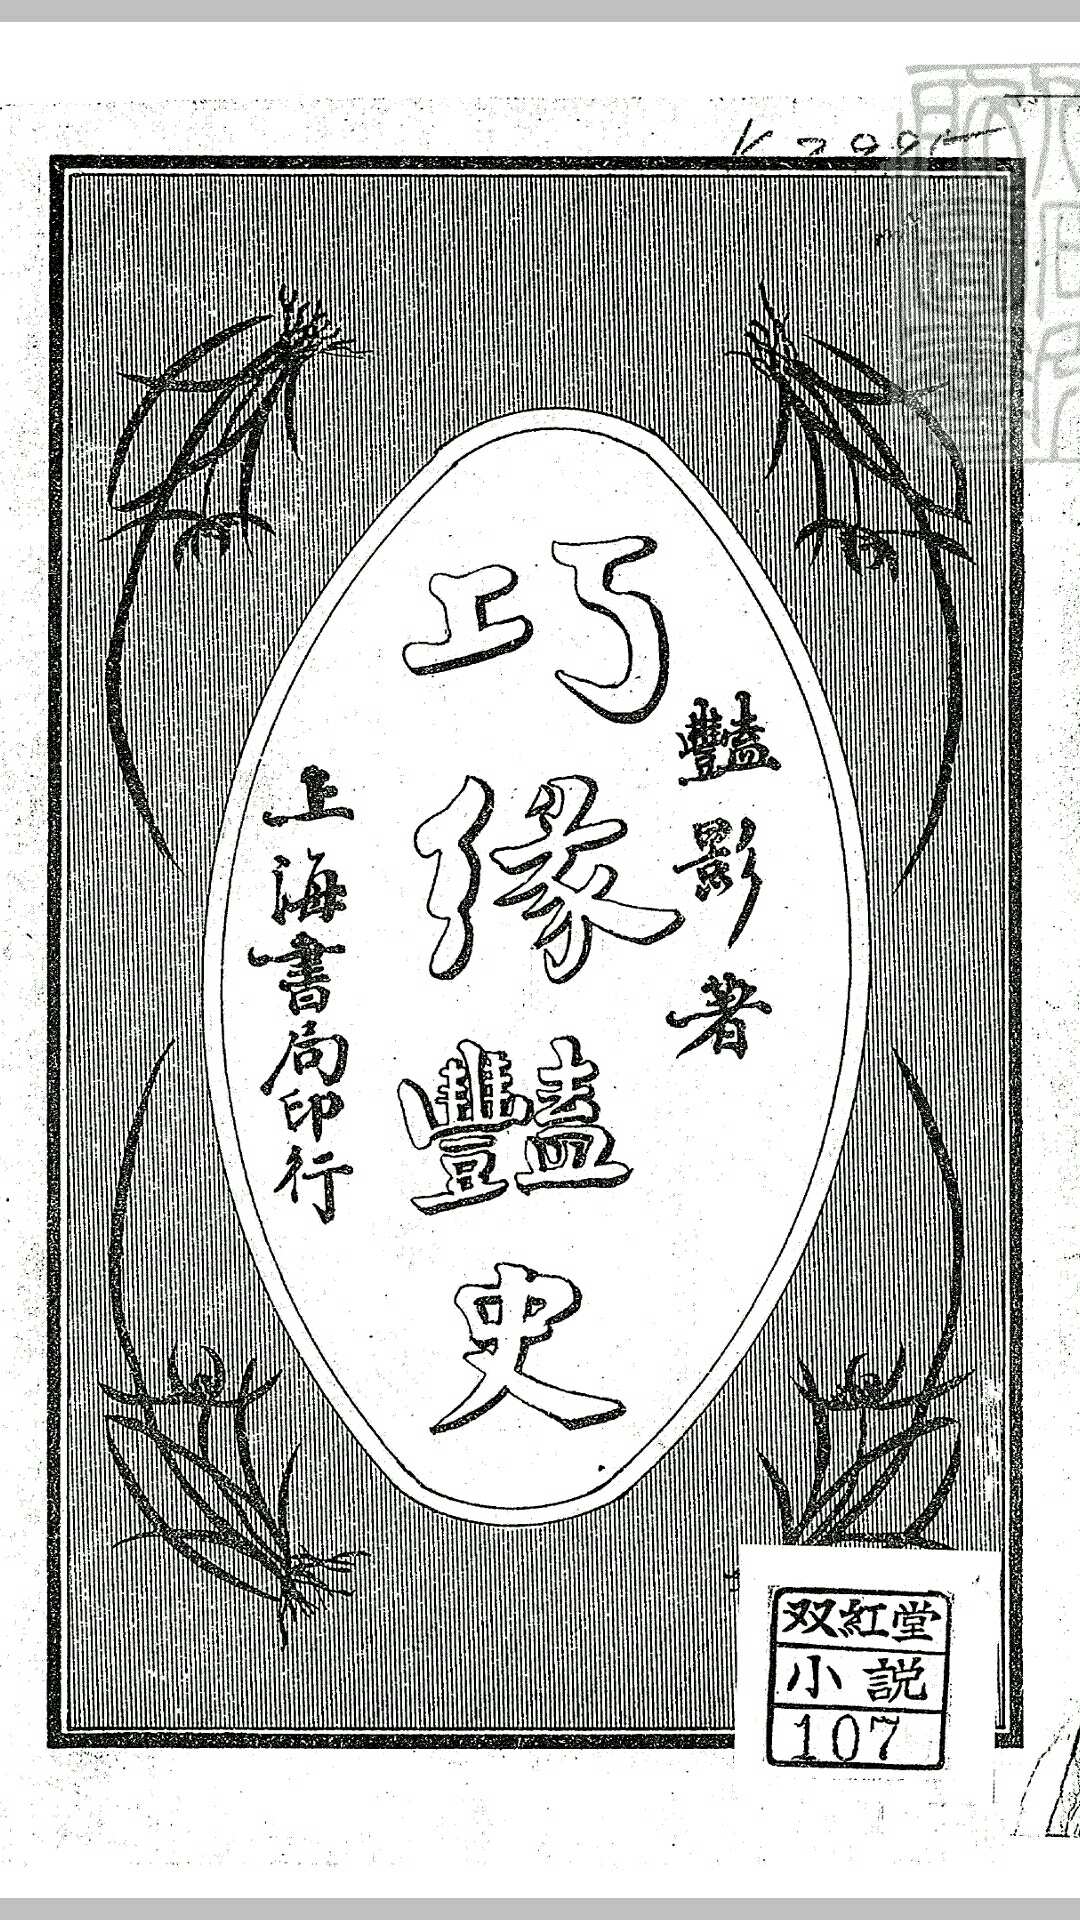 豔影著
巧緣豔史
上海書局印行
双紅堂
小説
107